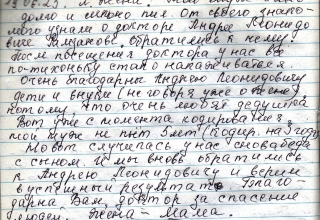 долго и много пил. От своего знако-
мого узнали о докторе Андрее Леонидо
виче обратились к нему.
После посещения доктора у нас всё
по-тихоньку стало налаживаться.
Очень благодарны Андрею Леонидовичу
дети и внуки (не говоря уже о жене)
потому, что очень любят дедушку
Вот уже с момента кодирования,
мой муж не пьёт 5 лет (кодир. на 5 год)
Но вот случилась у нас снова беда
с сыном. И мы вновь обратились
к Андрею Леонидовичу и верим
в успешный результат. Благо-
дарна Вам, доктор за спасение
людей. Жена - Мама.